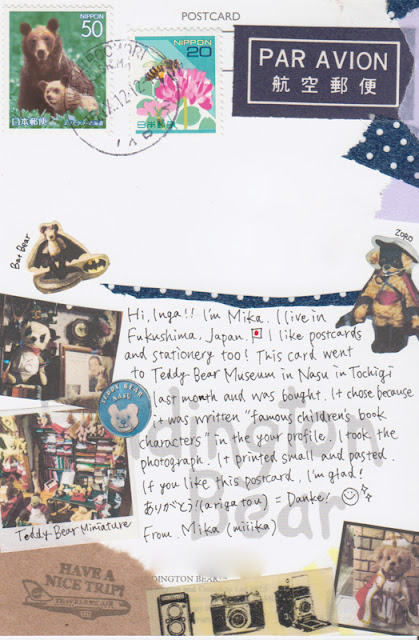 POSTCARD
NIPPON
50
日本郵便
NIPPON
20
日本郵便
PAR AVION
航空郵便
Bat Bear
ZORO
Hi, Inga!! I'm Mika. I live in
Fukushima, Japan. I like postcards
and stationery too! This card went
to Teddy Bear Museum in Nasu in Tochigi
last month and was bought. It chose because
it was written "famous children's book
characters" in the your profile. I took the
photograph. It printed small and pasted.
If you like this postcard, I'm glad!
ありがとう!(arigatou) = Danke!
From. Mika (miiika)
TEDDY BEAR
NASU
Teddy Bear Miniature
Bear
HAVE A
NICE TRIP!
TRAVELER'S AIR
DINGTON BEAR